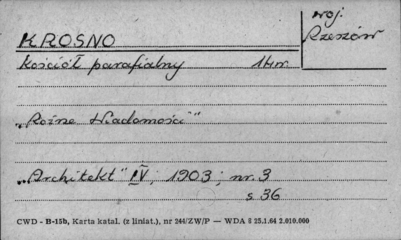 KROSNO
woj.
Rzeszów
Kościół parafialny 14w.
"Rożne Wiadomości"
"Architekt" IV, 1903; nr. 3
s. 36
CWD - B-15b, Karta katal. (z liniat.), nr 244/ZW/P — WDA § 25.1.64 2.010.000